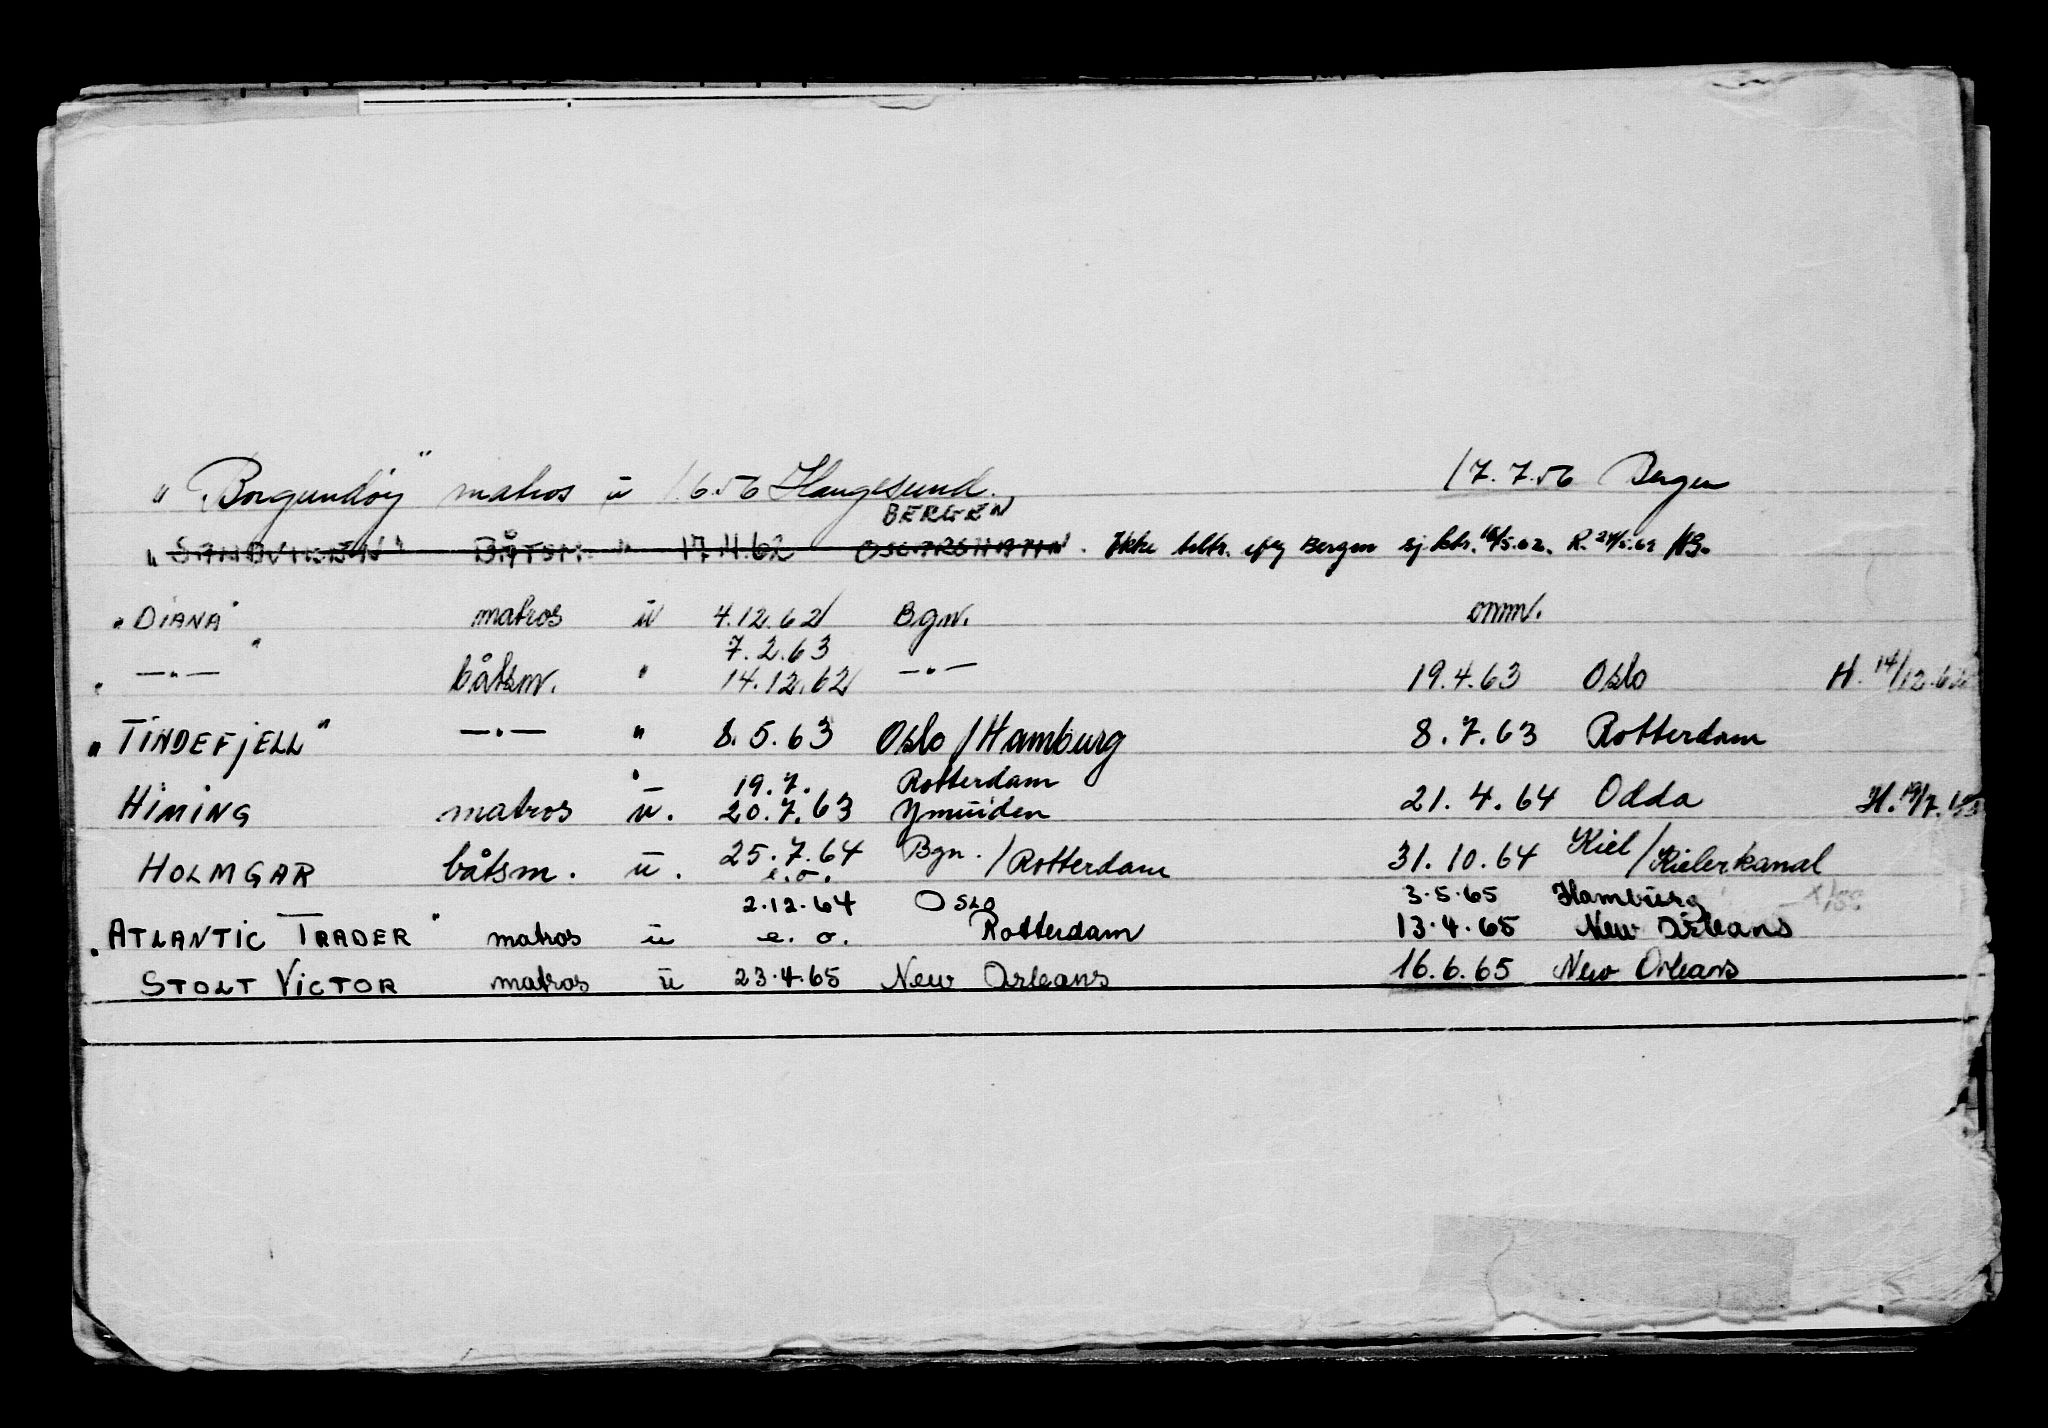 " Borgundøy" matros ü 1.6.56 Haugesund. 17.7.56 Bergen
BERGEN
" SANDVIKEN" BÅTSM. " 17.4.62 Ikke tiltr. efg Bergen sj.ktr. 18/5.62. R. 24/5.62
" DIANA" matros ü 4.12.62 Bgn. omm.
7.2.63
" —"— " båtsm. " 14.12.62 —"— 19.4.63 Oslo H. 14/12.62
" TINDEFJELL" —"— " 8.5.63 Oslo/Hamburg 8.7.63 Rotterdam
19.7. Rotterdam
HIMING matros ü. 20.7.63 Ymuiden 21.4.64 Odda H. 19/7.63
HOLMGAR båtsm. ü. 25.7.64 Bgn./Rotterdam 31.10.64 Kiel/Kielerkanal
e.o.
2.12.64 Oslo 3.5.65 Hamburg
" ATLANTIC TRADER" matros ü e.o. Rotterdam 13.4.65 New Orleans
STOLT VICTOR matros ü 23.4.65 New Orleans 16.6.65 New Orleans